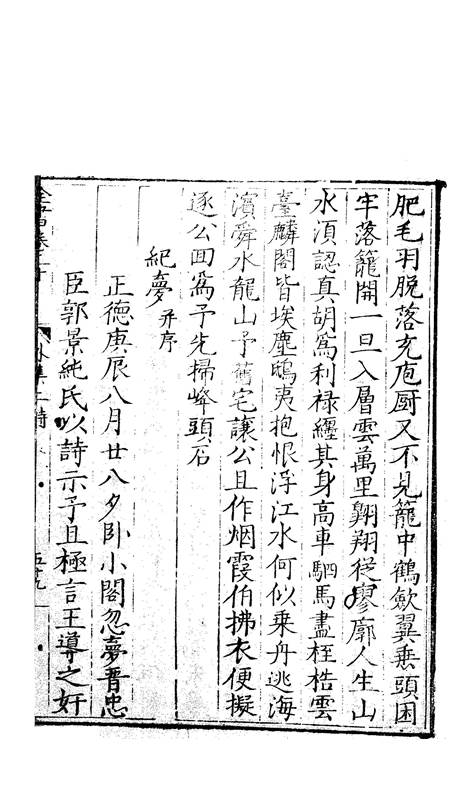 肥毛羽脱落充庖厨又不見籠中鶴歛翼垂頭困
牢落籠開一旦入層雲萬里翺翔從寥廓人生山
水湏認真胡爲利祿纏其身高車駟馬盡桎梏雲
臺麟閣皆埃塵鴟夷抱恨浮江水何似乗舟逃海
濱舜水龍山予舊宅讓公且作烟霞伯拂衣便擬
逐公回爲予先掃峰頭石
紀夢并序
正德庚辰八月廿八夕卧小閣忽夢晋忠
臣郭景純氏以詩示予且極言王導之奸
外集二 詩